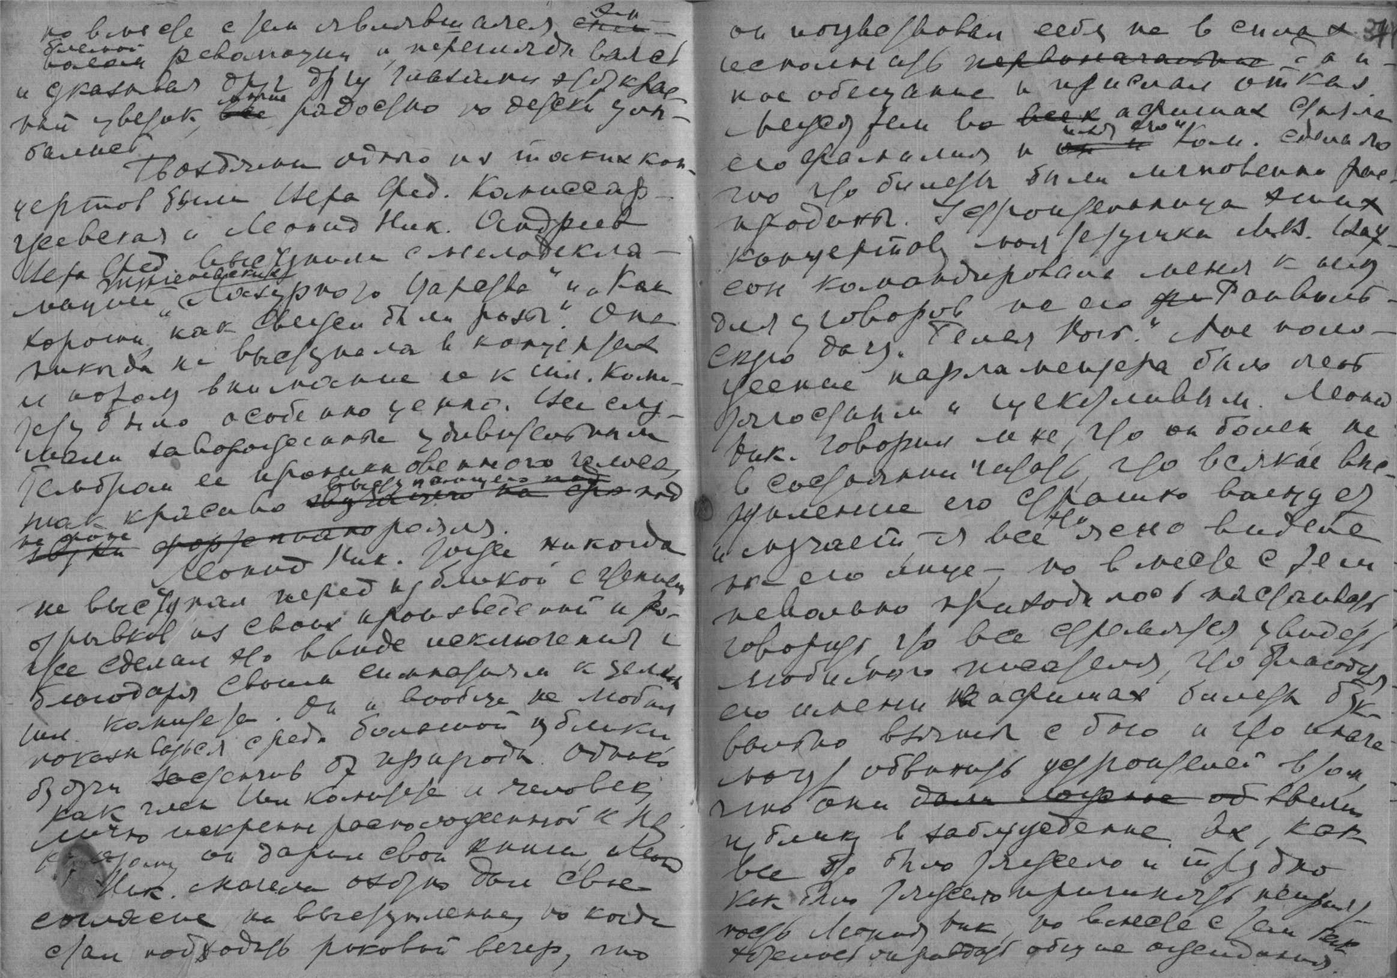 но вместе с тем являвшаяся
революции, и переглядывались
и указывая друг другу глазами на крас-
ный цветок, радостно по детски улы-
бались.
Гвоздями одного из таких кон-
цертов были Вера Фед. Комиссар-
жевская и Леонид Ник. Андреев
Вера Фед. выступила с мелодекла-
мацией „Лазурного царства" и „Как
хороши, как свежи были розы". Она
никогда не выступала в концертах
и потому внимание ее к Шл. Коми-
тету было особенно ценно. Все слу-
шали завороженные удивительным
тембром ее проникновенного голоса,
так красиво под
рояля.
Леонид Ник. тоже никогда
не выступал перед публикой с чтением
отрывков из своих произведений и то-
же сделал это в виде исключения и
благодаря своим симпатиям к целям
Шл. комитета. Он и вообще не любил
показываться среди большой публики
будучи застенчив от природы. Однако
как член Шл. комитета и человек,
лично искренне расположенный к
он дарил свои книги Леонид
Ник. сначала охотно дал свое
согласие на выступление, но когда
стал подходить роковой вечер, то
37
он почувствовал себя не в силах
исполнить
ное обещание и прислал отказ.
Между тем во афишах стояла
его фамилия и имя его Ком. сделало
то, что билеты были мгновенно рас-
проданы. Устроительница этих
концертов, моя тетушка М.В. Ват-
сон командировала меня к нему
для уговоров на его
скую дачу. „Белая Ночь". Мое поло-
жение парламентера было не из
тягостным и щекотливым. Леонид
Ник. говорил мне, что он болен, не
в состоянии читать, что всякое выс-
тупление его страшно волнует
и мучает, и я все это ясно видела
на его лице, но вместе с тем
невольно приходилось настаивать
говорить, что все стремятся увидеть
любимого писателя, что благодаря
его имени на афишах билеты бук-
вально взяты с бою и что иначе
могут обвинить устроителей в том,
что они ввели
публику в заблуждение. Ах, как
все это было тяжело и трудно
как было тяжело причинять неприят-
ность Леониду Ник., но вместе с тем
хотелось оправдать общие ожидания.